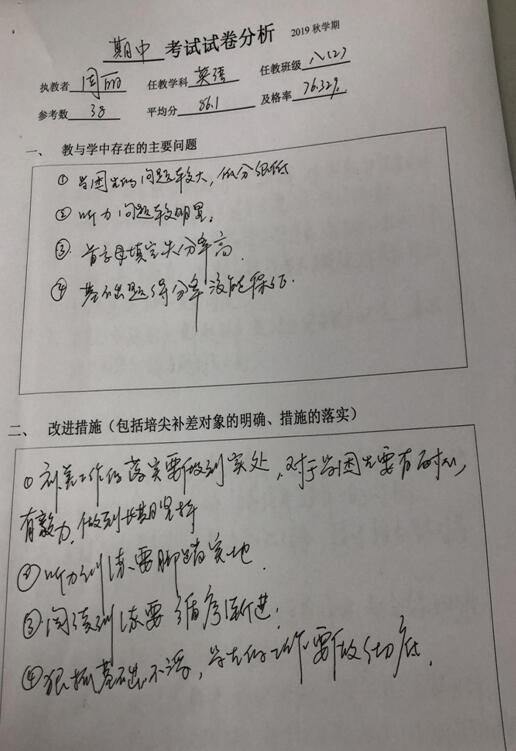 期中 考试试卷分析 2019 秋学期
执教者 周丽 任教学科 英语 任教班级 八(2)
参考数 38 平均分 86.1 及格率 76.32%
一、 教与学中存在的主要问题
① 学困生的问题较大,低分很低
② 听力问题较明显。
③ 首字母填空失分率高.
④ 基础题得分率没能保证.
二、 改进措施(包括培尖补差对象的明确、措施的落实)
① 补差工作的落实要做到实处,对于学困生要有耐心,
有毅力,做到长期坚持
② 听力训练要脚踏实地.
③ 阅读训练要循序渐进.
④ 狠抓基础不放,学生的工作要做彻底.